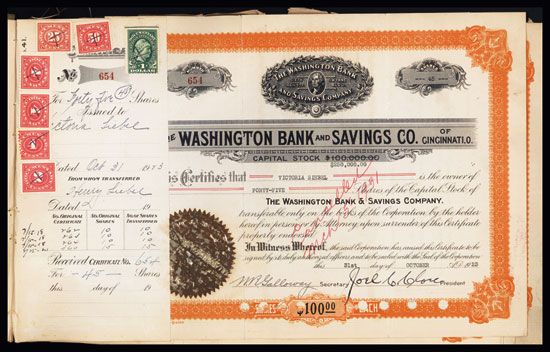 25
50
1
DOLLAR
No
654
For Forty Five (45) Shares
Issued to
Victoria Siebel
Dated Oct 31 1923
FROM WHOM TRANSFERRED
Henry Siebel
Dated 19
NO. ORIGINAL CERTIFICATE
NO. ORIGINAL SHARES
NO. OF SHARES TRANSFERRED
Received CERTIFICATE No. 654
For -45- Shares
this day of 19
654
THE WASHINGTON BANK
AND SAVINGS COMPANY
45
THE WASHINGTON BANK AND SAVINGS CO. OF CINCINNATI, O.
CAPITAL STOCK $100,000.00
$250,000.00
This Certifies that VICTORIA SIEBEL is the owner of
FORTY-FIVE Shares of the Capital Stock of
THE WASHINGTON BANK & SAVINGS COMPANY.
transferable only on the books of the Corporation by the holder
hereof in person or by Attorney upon surrender of this Certificate
properly endorsed.
In Witness Whereof, the said Corporation has caused this Certificate to be
signed by its duly authorized officers and to be sealed with the Seal of the Corporation
this 31st day of OCTOBER A.D. 1923
Secretary
Joel C. Clore
President
SHARES $100.00 EACH